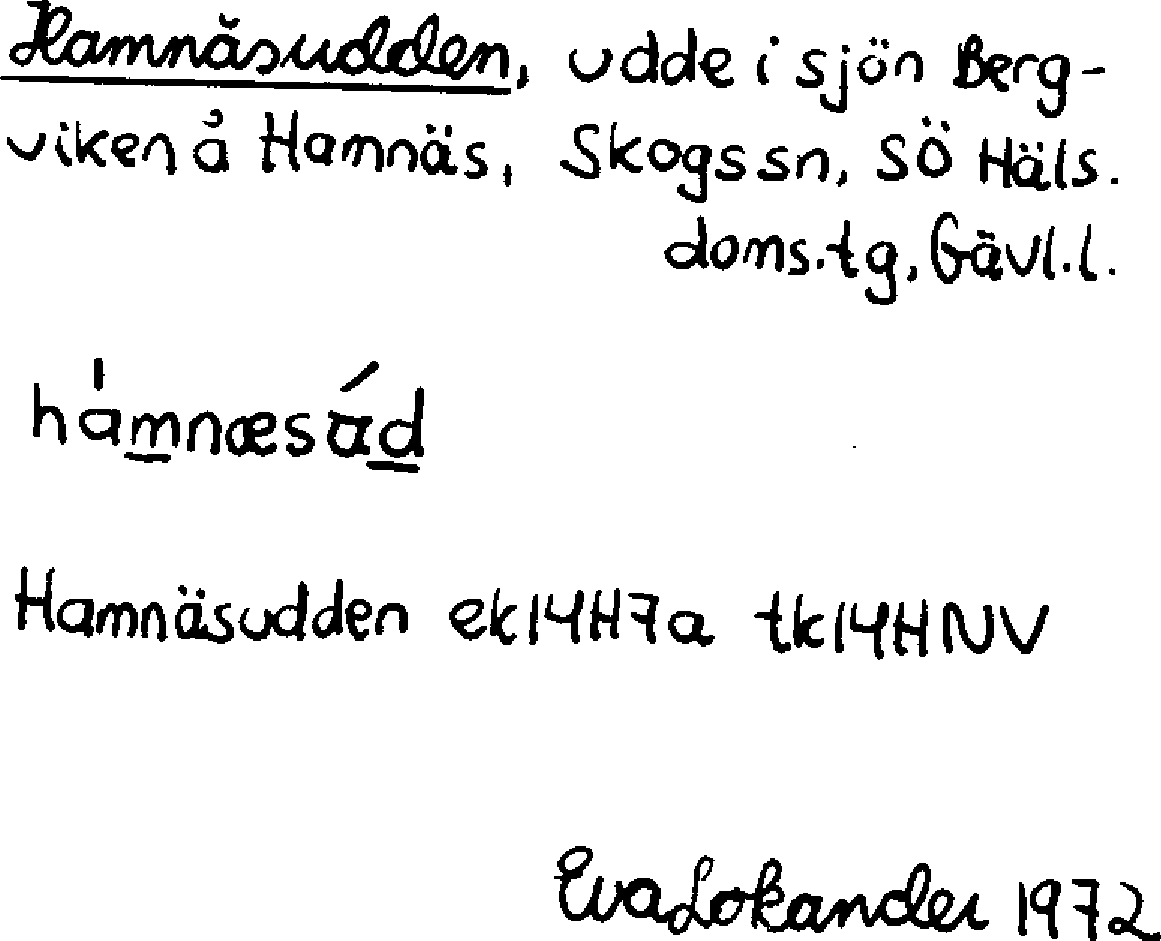 Hamnäsudden, udde i sjön Berg-
viken å Hamnäs, Skogs sn, SÖ Häls.
doms.tg, Gävl.l.
hámnæsád
Hamnäsudden ek14H7a tk14HNV
Eva Lokander 1972